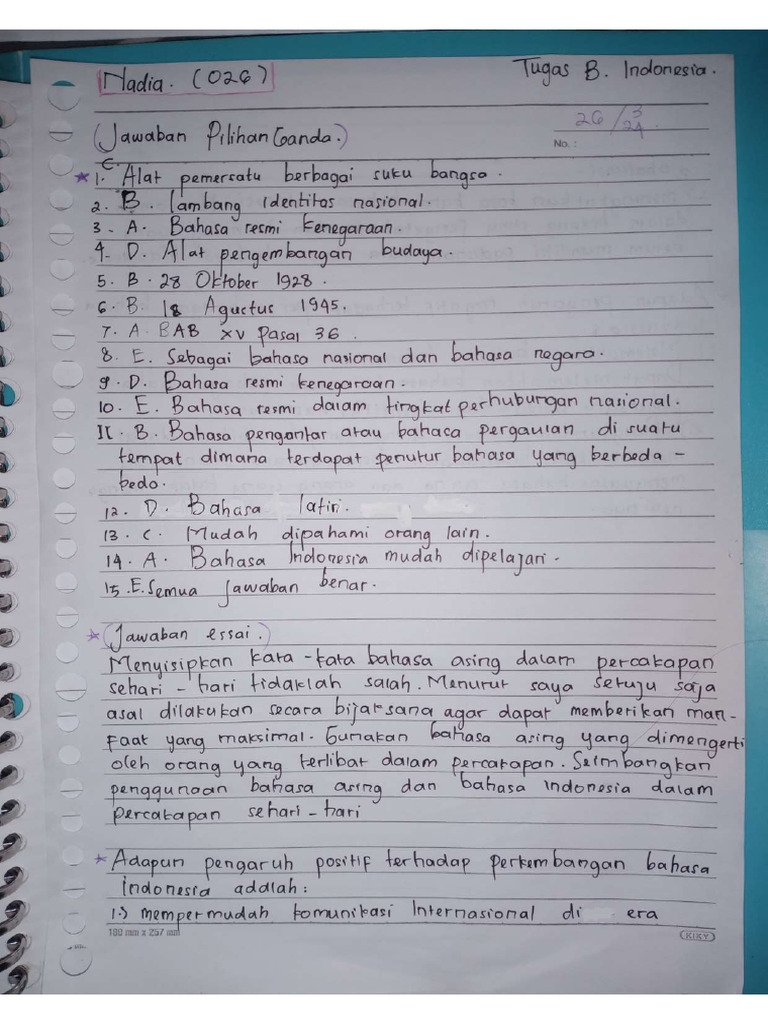 Nadia. (026)
Tugas B. Indonesia.
26/3/24
No. :
(Jawaban Pilihan Ganda.)
* 1. C. Alat pemersatu berbagai suku bangsa.
2. B. Lambang identitas nasional.
3. A. Bahasa resmi kenegaraan.
4. D. Alat pengembangan budaya.
5. B. 28 Oktober 1928.
6. B. 18 Agustus 1945.
7. A. BAB XV Pasal 36.
8. E. Sebagai bahasa nasional dan bahasa negara.
9. D. Bahasa resmi kenegaraan.
10. E. Bahasa resmi dalam tingkat perhubungan nasional.
11. B. Bahasa pengantar atau bahasa pergaulan di suatu
tempat dimana terdapat penutur bahasa yang berbeda -
beda.
12. D. Bahasa latin.
13. C. Mudah dipahami orang lain.
14. A. Bahasa Indonesia mudah dipelajari.
15. E. Semua jawaban benar.
* (Jawaban essai.)
Menyisipkan kata-kata bahasa asing dalam percakapan
sehari-hari tidaklah salah. Menurut saya setuju saja
asal dilakukan secara bijaksana agar dapat memberikan man-
faat yang maksimal. Gunakan bahasa asing yang dimengerti
oleh orang yang terlibat dalam percakapan. Seimbangkan
penggunaan bahasa asing dan bahasa indonesia dalam
percakapan sehari-hari
* Adapun pengaruh positif terhadap perkembangan bahasa
indonesia adalah:
1.) mempermudah komunikasi Internasional di era
180 mm x 257 mm
KIKY